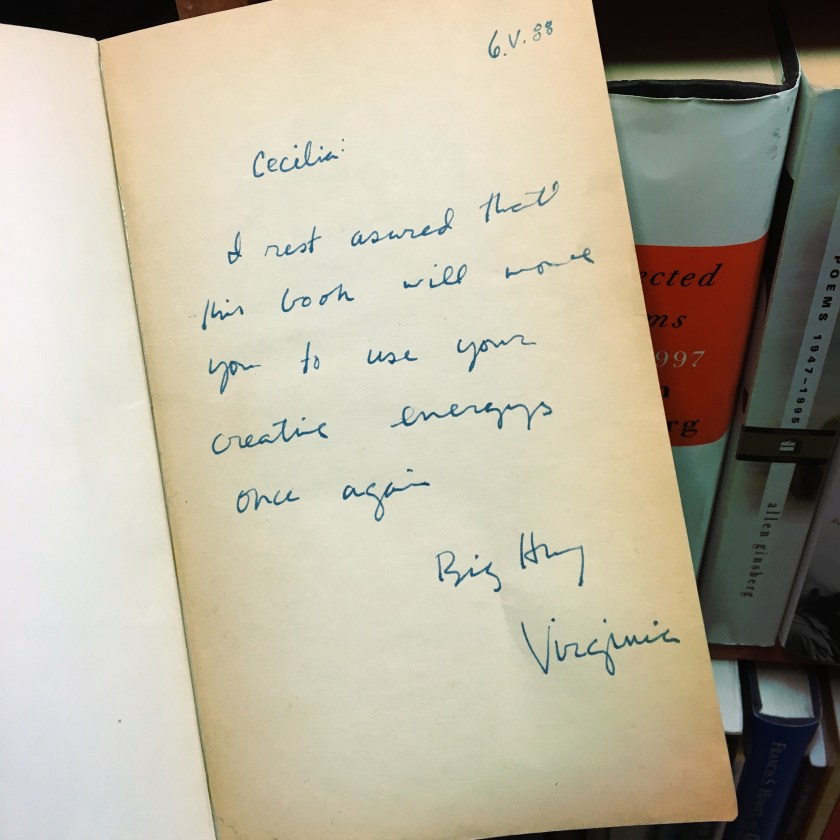 6.V.88
Cecilia:
I rest asured that
this book will move
you to use your
creative energys
once again
Big Hug
Virginia
ected
ms
997
rg
POEMS 1947-1995
allen ginsberg
FRANCIS S.